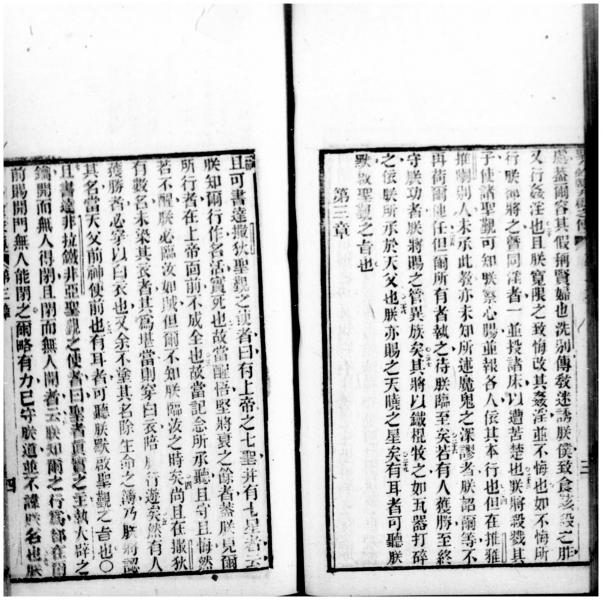 處蓋爾容其假稱賢婦也洗別傳敎迷誘朕僕致食該殺之胙
又行姦淫也且朕寬限之致悔改其姦淫並不悔也如不悔所
行朕便將之暨同淫者一並投諸床以遭苦楚也朕將殺戮其
子使諸聖觀可知朕察心腸並報各人依其本行也但在推雅
推喇別人未承此敎亦未知所述魔鬼之深謬者朕詔爾等不
再荷爾他任但爾所有者執之待朕臨至矣若有人獲勝至終
守朕功者朕將賜之管異族矣其將以鐵棍牧之如瓦器打碎
之依朕所承於天父也朕亦賜之天曉之星矣有耳者可聽朕
默啟聖觀之言也
第三章
且可書達撒狄聖觀之使者曰有上帝之七聖并有七星者云
朕知爾行作名活實死也故當醒悟堅將衰之餘者蓋朕見爾
所行者在上帝面前不成全也故當記念所承聽且守且悔然
若不醒朕必臨汝如賊但爾不知朕臨汝之時矣尚且在撒狄
有數名未染其衣者其爲堪當則穿白衣陪朕行遊矣然有人
獲勝者必穿以白衣也又余不塗其名除生命之簿乃朕將認
其名當天父前神使前也有耳者可聽朕默啟聖觀之言也〇
且書達非拉鐵非亞聖觀之使者曰聖者眞實之主執大辟之
鑰開而無人得閉且閉而無人開者云朕知爾之行爲都在爾
前賜開門無人能閉之爾略有力已守朕道並不諱朕名也朕
第三章
四
三